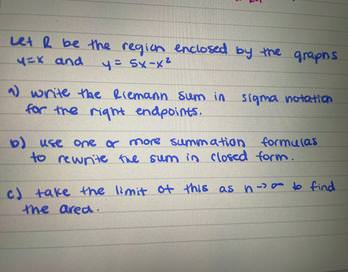 Let R be the region enclosed by the graphs
y=x and y= 5x-x²
a) write the Riemann sum in sigma notation
for the right endpoints.
b) use one or more summation formulas
to rewrite the sum in closed form.
c) take the limit of this as n->∞ to find
the area.